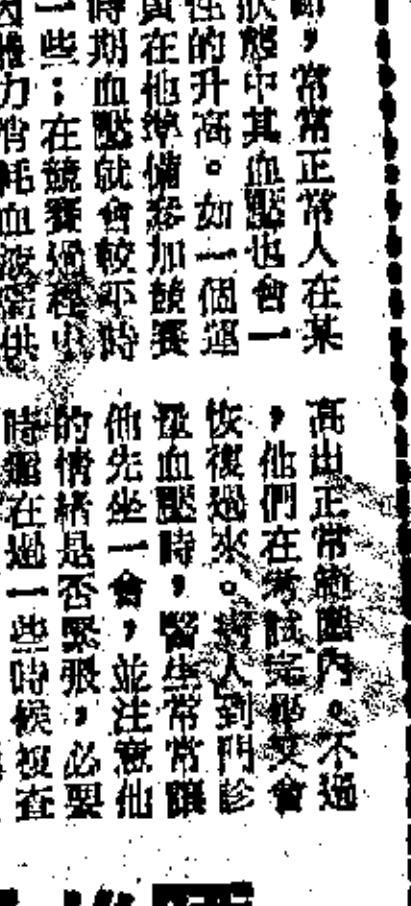 節，常常正常人在某
狀態中其血壓也會一
性的升高。如一個運
員在他準備參加競賽
時期血壓就會較平時
一些；在競賽過程中
力消耗血液需供
高出正常範圍內。不過
，他們在考試完畢又會
恢復過來。病人到門診
量血壓時，醫生常常讓
他先坐一會，並注意他
的情緒是否緊張，必要
時擱在過一些時候復查